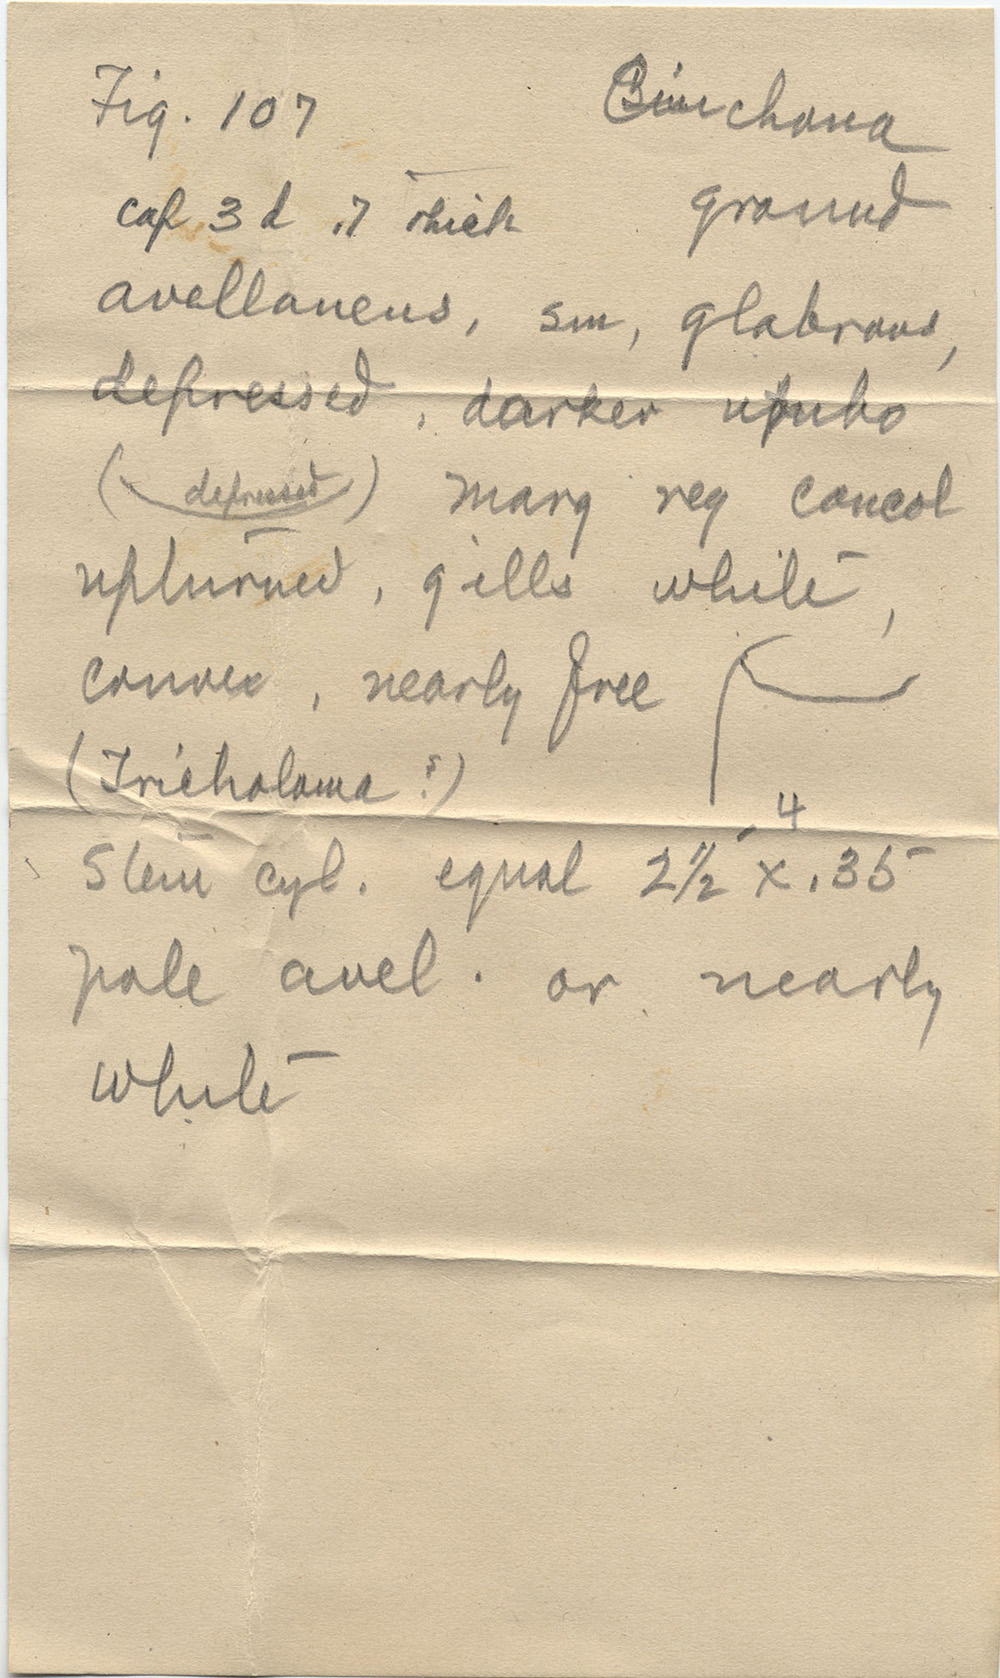 Fig. 107 Cinchona
cap 3 d .7 thick ground
avellaneus, sm, glabrous,
depressed, darker umbo
(depressed) marg reg concol
upturned, gills white,
convex, nearly free
(Tricholoma?)
.4
Stem cyl. equal 2 1/2 x .35
pale avel. or nearly
white